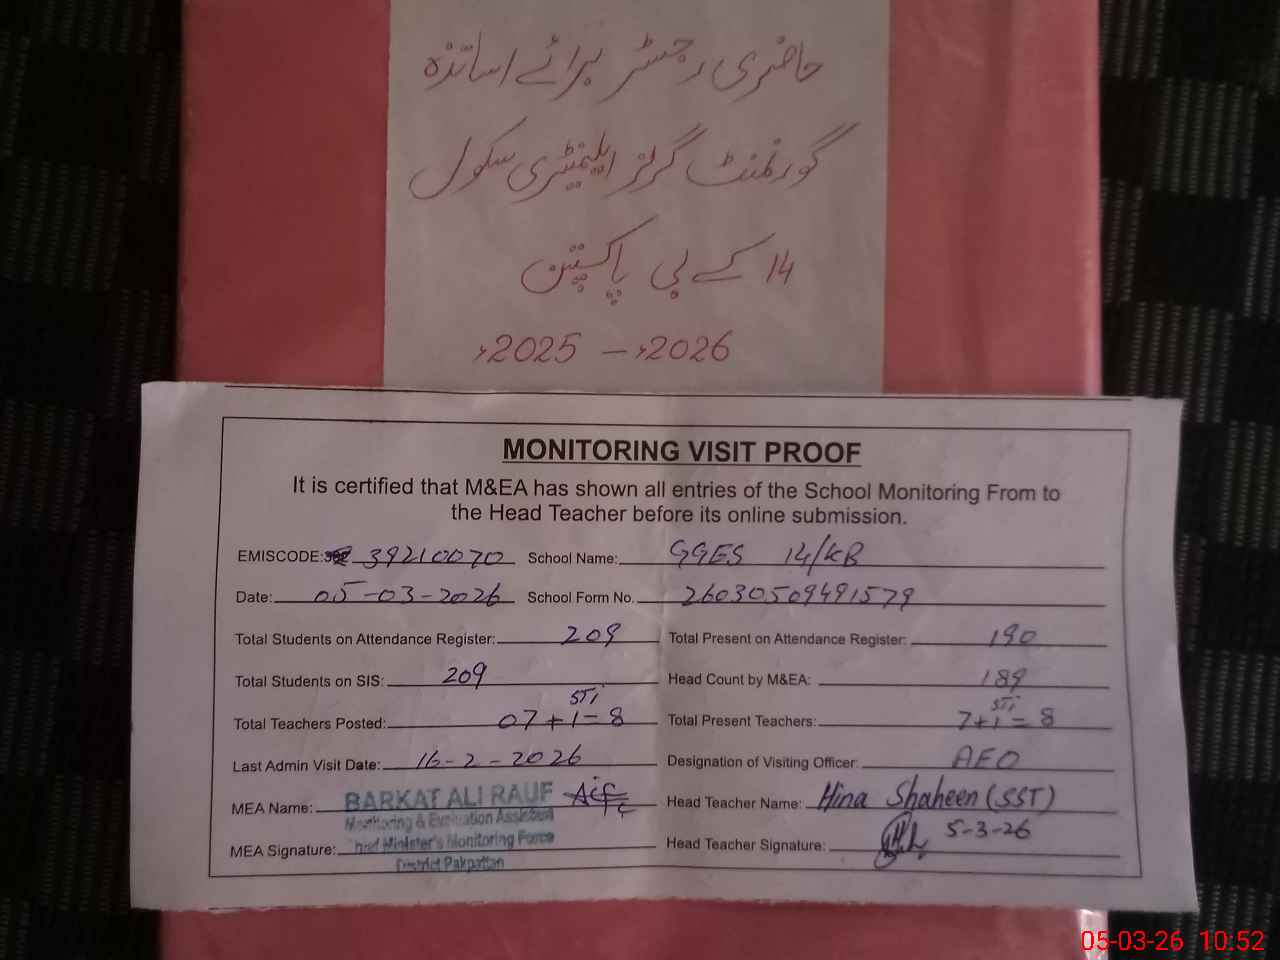 حاضری رجسٹر برائے اساتذہ
گورنمنٹ گرلز ایلیمنٹری سکول
14 کے بی پاکپتن
2025ء – 2026ء
MONITORING VISIT PROOF
It is certified that M&EA has shown all entries of the School Monitoring From to
the Head Teacher before its online submission.
EMISCODE: 39210070 School Name: GGES 14/KB
Date: 05-03-2026 School Form No. 26030509491579
Total Students on Attendance Register: 209 Total Present on Attendance Register: 190
Total Students on SIS: 209 Head Count by M&EA: 189
Total Teachers Posted: 07 + 1 STI = 8 Total Present Teachers: 7+1 STI = 8
Last Admin Visit Date: 16-2-2026 Designation of Visiting Officer: AEO
MEA Name: BARKAT ALI RAUF Head Teacher Name: Hina Shaheen (SST)
Monitoring & Evaluation Assistant
MEA Signature: Chief Minister's Monitoring Force Head Teacher Signature: 5-3-26
District Pakpattan
05-03-26 10:52